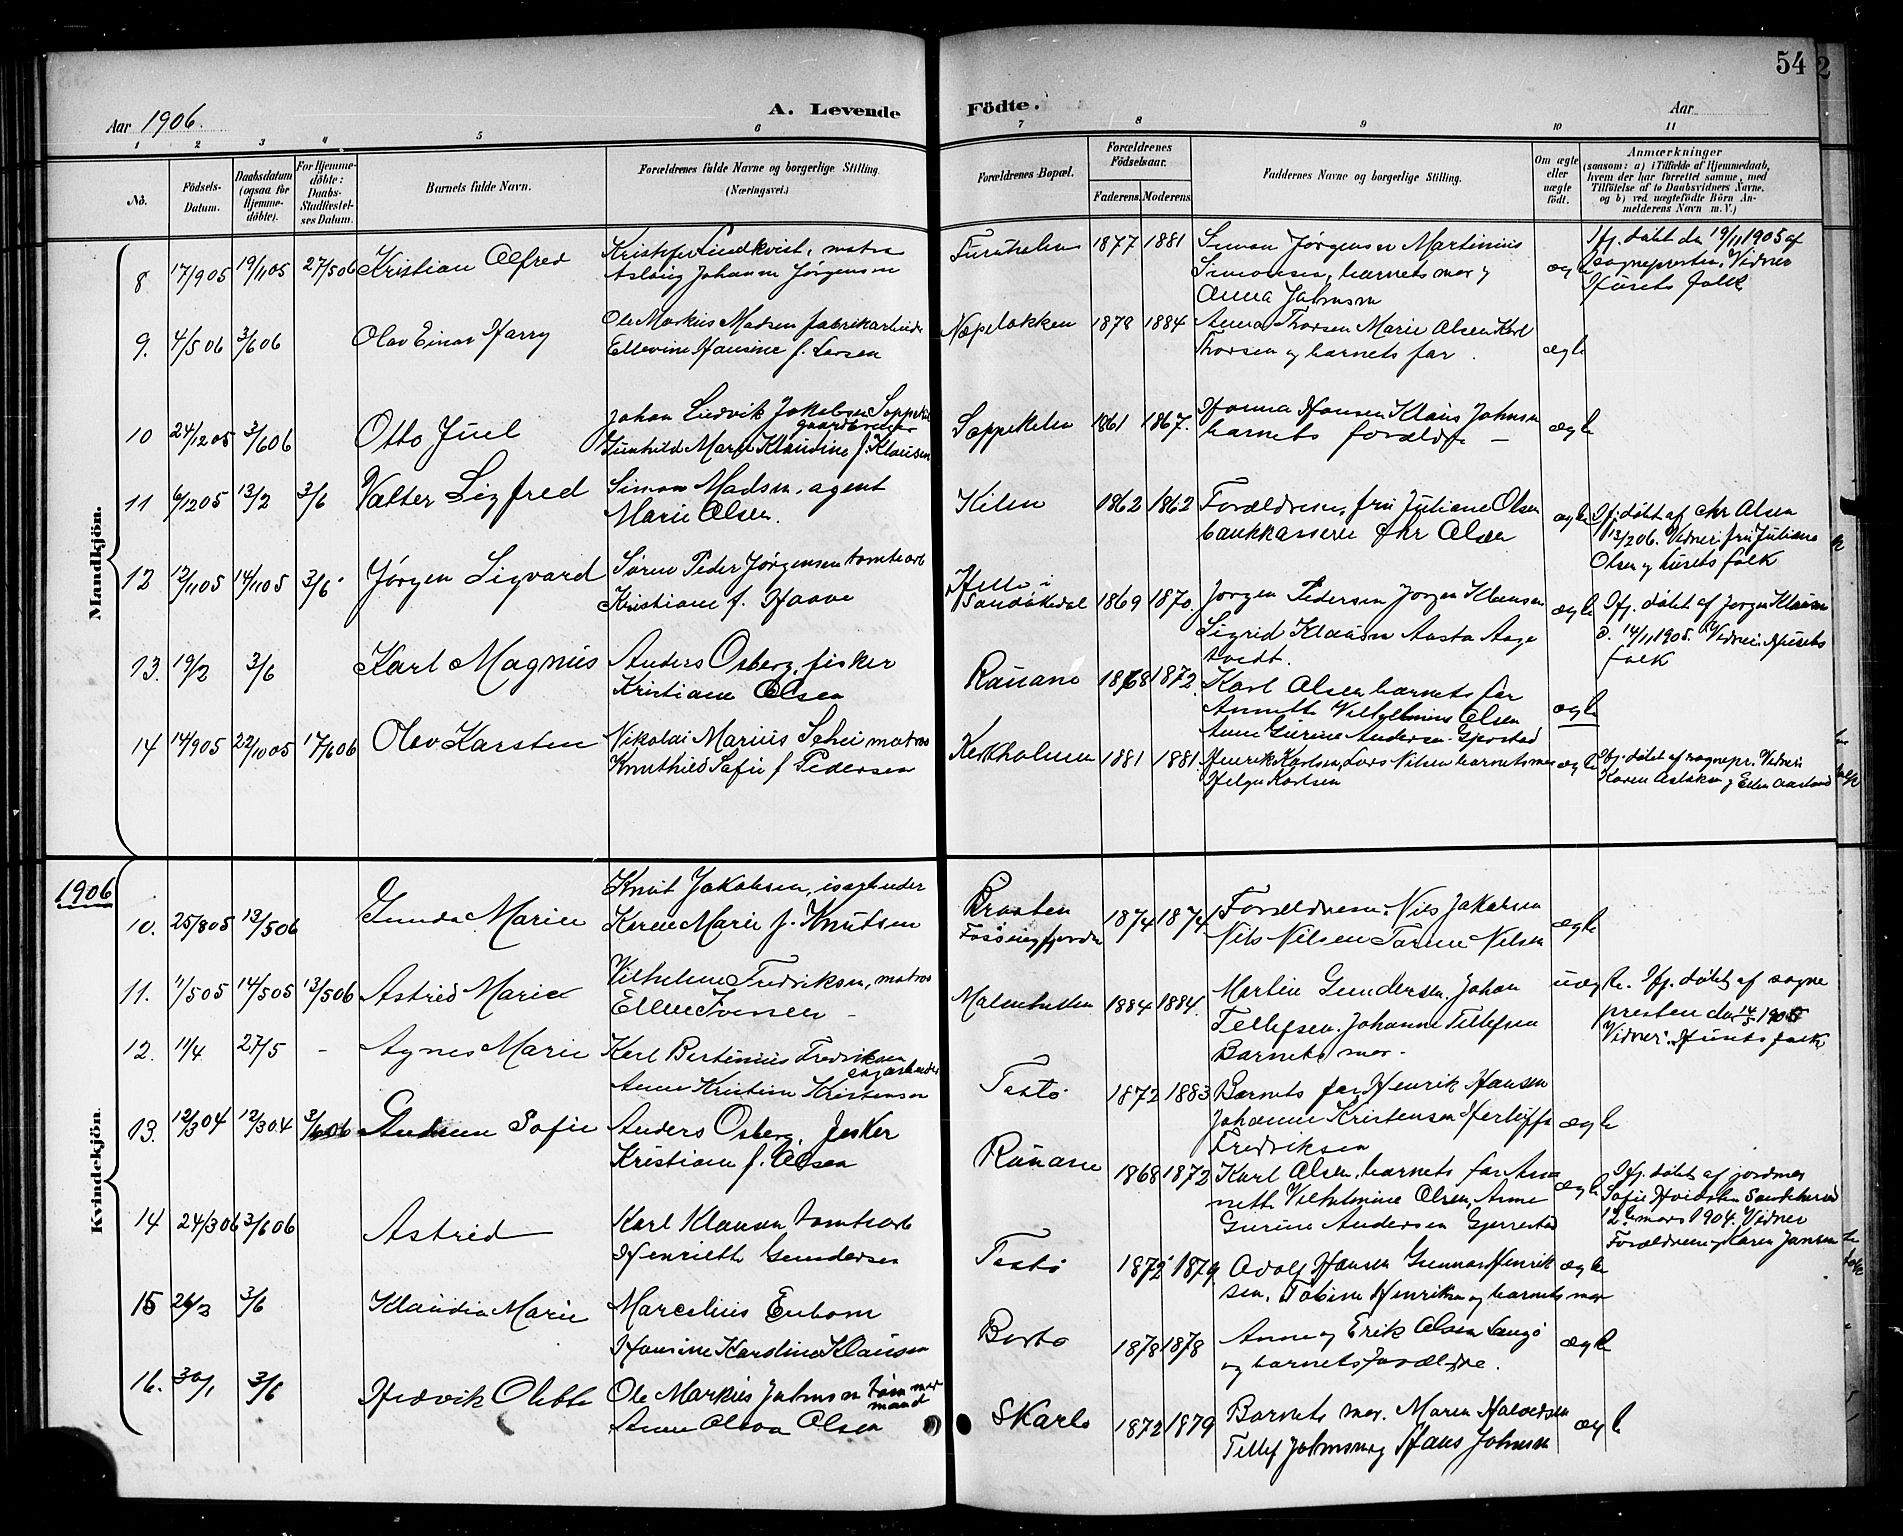 54
Aar 1906.
A. Levende Födte.
Aar
1 2 3 4 5 6 7 8 9 10 11
No.
Födsels-Datum.
Daabsdatum (ogsaa for Hjemme-döbte).
For Hjemme-döbte: Daabs-Stadfæstel-ses Datum.
Barnets fulde Navn.
Forældrenes fulde Navne og borgerlige Stilling. (Næringsvei.)
Forældrenes Bopæl.
Forældrenes Födselsaar.
Faderens. Moderens.
Faddernes Navne og borgerlige Stilling.
Om ægte eller uægte födt.
Anmærkninger
(saasom: a) i Tilfælde af Hjemmedaab, hvem der har forrettet samme, med Tilföielse af to Daabsvidners Navne, og b) ved uægtefödte Börn An-melderens Navn m. V.)
Mandkjön.
8 17/9 05 19/11 05 27/5 06 Kristian Alfred
Kristofer Lindkvist, matros
Aslaug Johanne Jørgensen
1877 1881
Simon Jørgensen Martinius
Simonsen, barnets mor og
Anna Johnsen
ægte
Hj. døbt den 19/11 1905 af
sognepresten. Vidner
Husets folk
9. 4/5 06 3/6 06 Olav Einar Harry
Ole Markus Madsen fabrikarbeider
Ellevine Hansine f. Larsen
Næpeløkken 1878 1884
Anna Thorsen Marie Olsen Karl
Thorsen og barnets far.
ægte
10 24/12 05 3/6 06 Otto Juel
Johan Ludvik Jakobsen Soppekil
gaardbruger
Gunhild Marie Klaudine f. Klausen
Soppekilen 1861 1867.
Hanna Hansen Klaus Johnsen
barnets forældre —
ægte
11 6/12 05 13/2 3/6 Valter Sigfred
Simon Madsen, agent
Marie Olsen.
Kilen 1862 1862
Forældrene, fru Juliane Olsen
bankkasserer Chr Olsen
ægte
Hj. døbt af Chr Olsen
13/2 06. Vidner: fru Juliane
Olsen og husets folk
12 12/11 05 14/11 05 3/6 Jørgen Sigvard
Søren Peder Jørgensen tomtearb
Kristiane f. Haave
Helle i
Sandøkedal 1869 1870.
Jørgen Pedersen Jørgen Klausen
Sigrid Klausen Aasta Aage
tvedt.
ægte
Hj. døbt af Jørgen Klausen
d. 14/11 1905. Vidner: Husets
folk
13. 19/2 3/6 Karl Magnus
Anders Osberg, fisker
Kristiane Olsen
Rauane 1868 1872.
Karl Olsen barnets far
Annette Vilhelmine Olsen
Anne Gurine Andersen Gjerstad
ægte
14 14/9 05 22/10 05 17/6 06 Olav Karsten
Nikolai Marius Schei matros
Knuthild Sofie f Pedersen
1881 1881
Henrik Karlsen, Lars Nilsen barnets mor
Helga Karlsen
ægte
Hj. døbt af sognepr. Vidner:
Karen Aslaksen og Ellen Aasland
1906
Kvindekjön.
10. 25/8 05 13/5 06 Gunda Marie
Knut Jakobsen, isarbeider
Karen Marie f. Knutsen
Braaten
Fossingfjorden 1874 1874
Forældrene. Nils Jakobsen
Nils Nilsen Tarine Nilsen
ægte
11. 1/5 05 14/5 05 13/5 06 Astrid Marie
Vilhelm Fredriksen, matros
Ellen Iversen —
1884 1884.
Martin Gundersen Johan
Tellefsen. Johanne Tellefsen
Barnets mor.
uægte. Hj. døbt af sogne
presten den 14/5 1905
Vidner: Husets folk
12. 11/4 27/5 - Agnes Marie
Karl Bertinius Fredriksen
sagarbeider
Anne Kristine Kristensen
Teatø 1872 1883
Barnets far Henrik Hansen
Johanne Kristensen
Fredriksen
ægte
13. 12/3 04 12/3 04 3/6 06 Sofie
Anders Osberg, fisker
Kristiane f. Olsen
Rauane 1868 1872
Karl Olsen, barnets far An
nette Vilhelmine Olsen, Anne
Gurine Andersen Gjerrestad
ægte
Hj. døbt af jordmor
Sofie
12te mars 1904. Vidner
Forældrene og Karen Jansen
14 24/3 06 3/6 06 Astrid
Karl Klausen tomtearb
Henriette Gundersen
Teatø 1872 1879
Adolf Hansen Gunnar Henrik
sen. Tobine Henriksen og barnets mor
ægte
15 26/3 3/6 Klaudia Marie
Marcelius Enbom
Hansine Karoline Klausen
Bartø 1878 1878
Anne og Erik Olsen Langø
og barnets forældre.
ægte
16. 30/1 3/6 Hedvik Olette
Ole Markus Johnsen tømmer
mand
Anne Olava Olsen
Skarbo 1872 1879
Barnets mor. Maren Halvorsen
Tellef Johnsen og Hans Johnsen
ægte